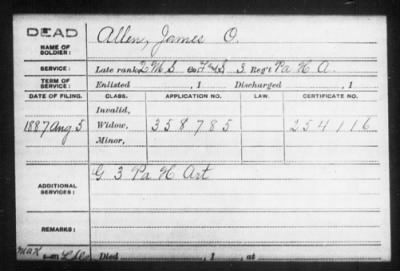 DEAD
NAME OF SOLDIER: Allen, James O.
SERVICE: Late rank, Co. F & S 3 Reg't Pa H A.
TERM OF SERVICE: Enlisted , 1 Discharged , 1
DATE OF FILING. CLASS. APPLICATION NO. LAW. CERTIFICATE NO.
Invalid,
1887 Aug 5 Widow, 358785 254116
Minor,
ADDITIONAL SERVICES: G 3 Pa H Art
REMARKS:
Died , 1 , at